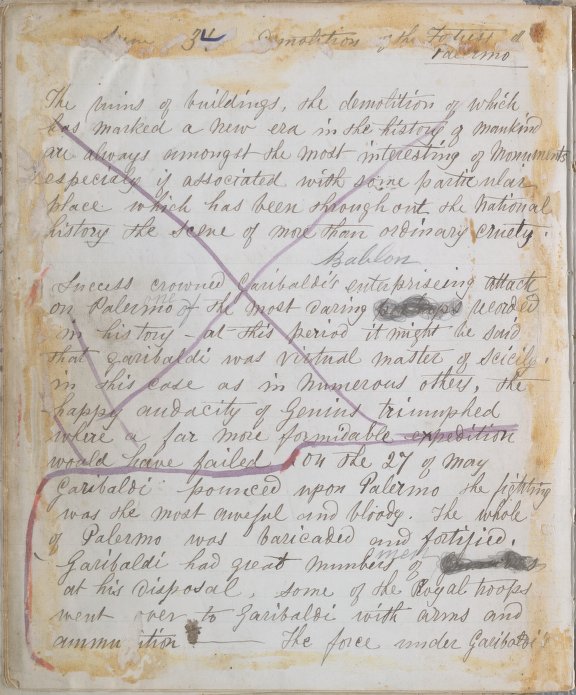 34 Demolition of the Fortress at
Palermo
The ruins of buildings, the demolition of which
has marked a new era in the history of mankind
are always amongst the most interesting of Monuments
especialy if associated with some particular
place which has been throughout the National
history the scene of more than ordinary cruelty.
Bablon
Success crowned Garibaldi's enterpriseing attack
on Palermo one of the most daring recorded
in history - at this period it might be said
that Garibaldi was virtual master of Scicily.
in this case as in numerous others, the
happy audacity of Genius triumphed
where a far more formidable expedition
would have failed. on the 27 of May
Garibaldi pounced upon Palermo the fighting
was the most aweful and bloody. The whole
of Palermo was baricaded and fortified.
Garibaldi had great numbers of men
at his disposal, some of the Royal troops
went over to Garibaldi with arms and
ammunition — The force under Garibaldi's